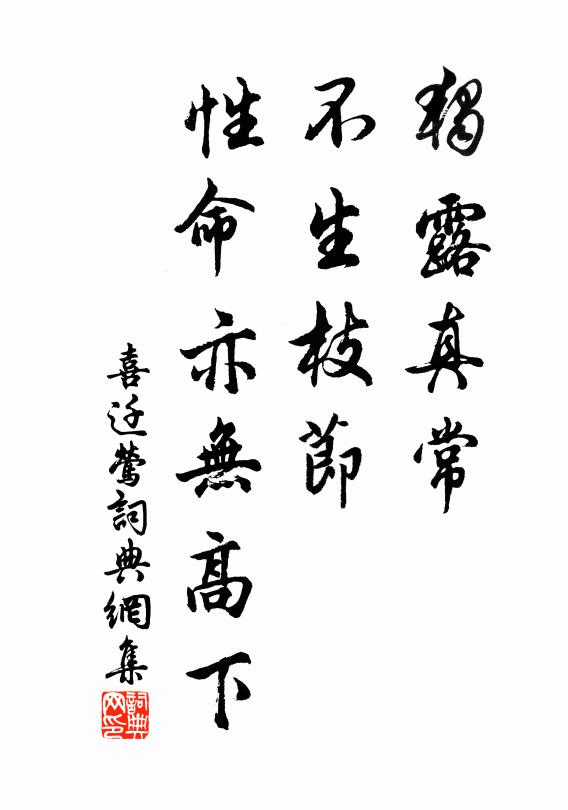 獨露真常
不生枝節
性命亦無高下
喜迁鶯詞典網集
詞典
網印